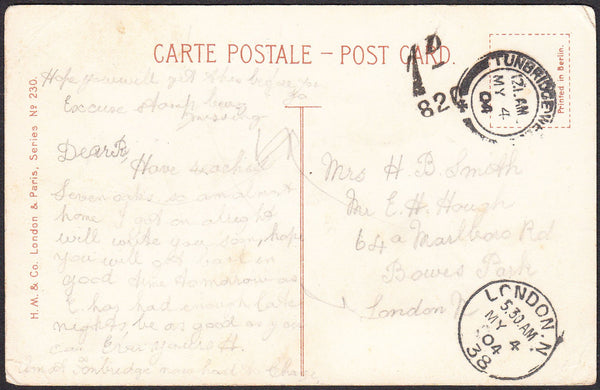 CARTE POSTALE – POST CARD.
Printed in Berlin.
H.M. & Co. London & Paris, Series No 230.
1D
824
TUNBRIDGE WE
12.1. AM
MY 4
04
Hope you will get this before
Excuse stamp being
missing
Dear
Have reached
Sevenoaks so am almost
home I got on alright
will write you soon, hope
you will get back in
good time tomorrow as
E. has had enough late
nights be as good as you
can Ever yours H.
Tonbridge now had to
Mrs H. B. Smith
Mr E. H. Hough
64a Marlboro Rd
Bowes Park
London N
LONDON. N.
5.30 AM
MY 4
04
38